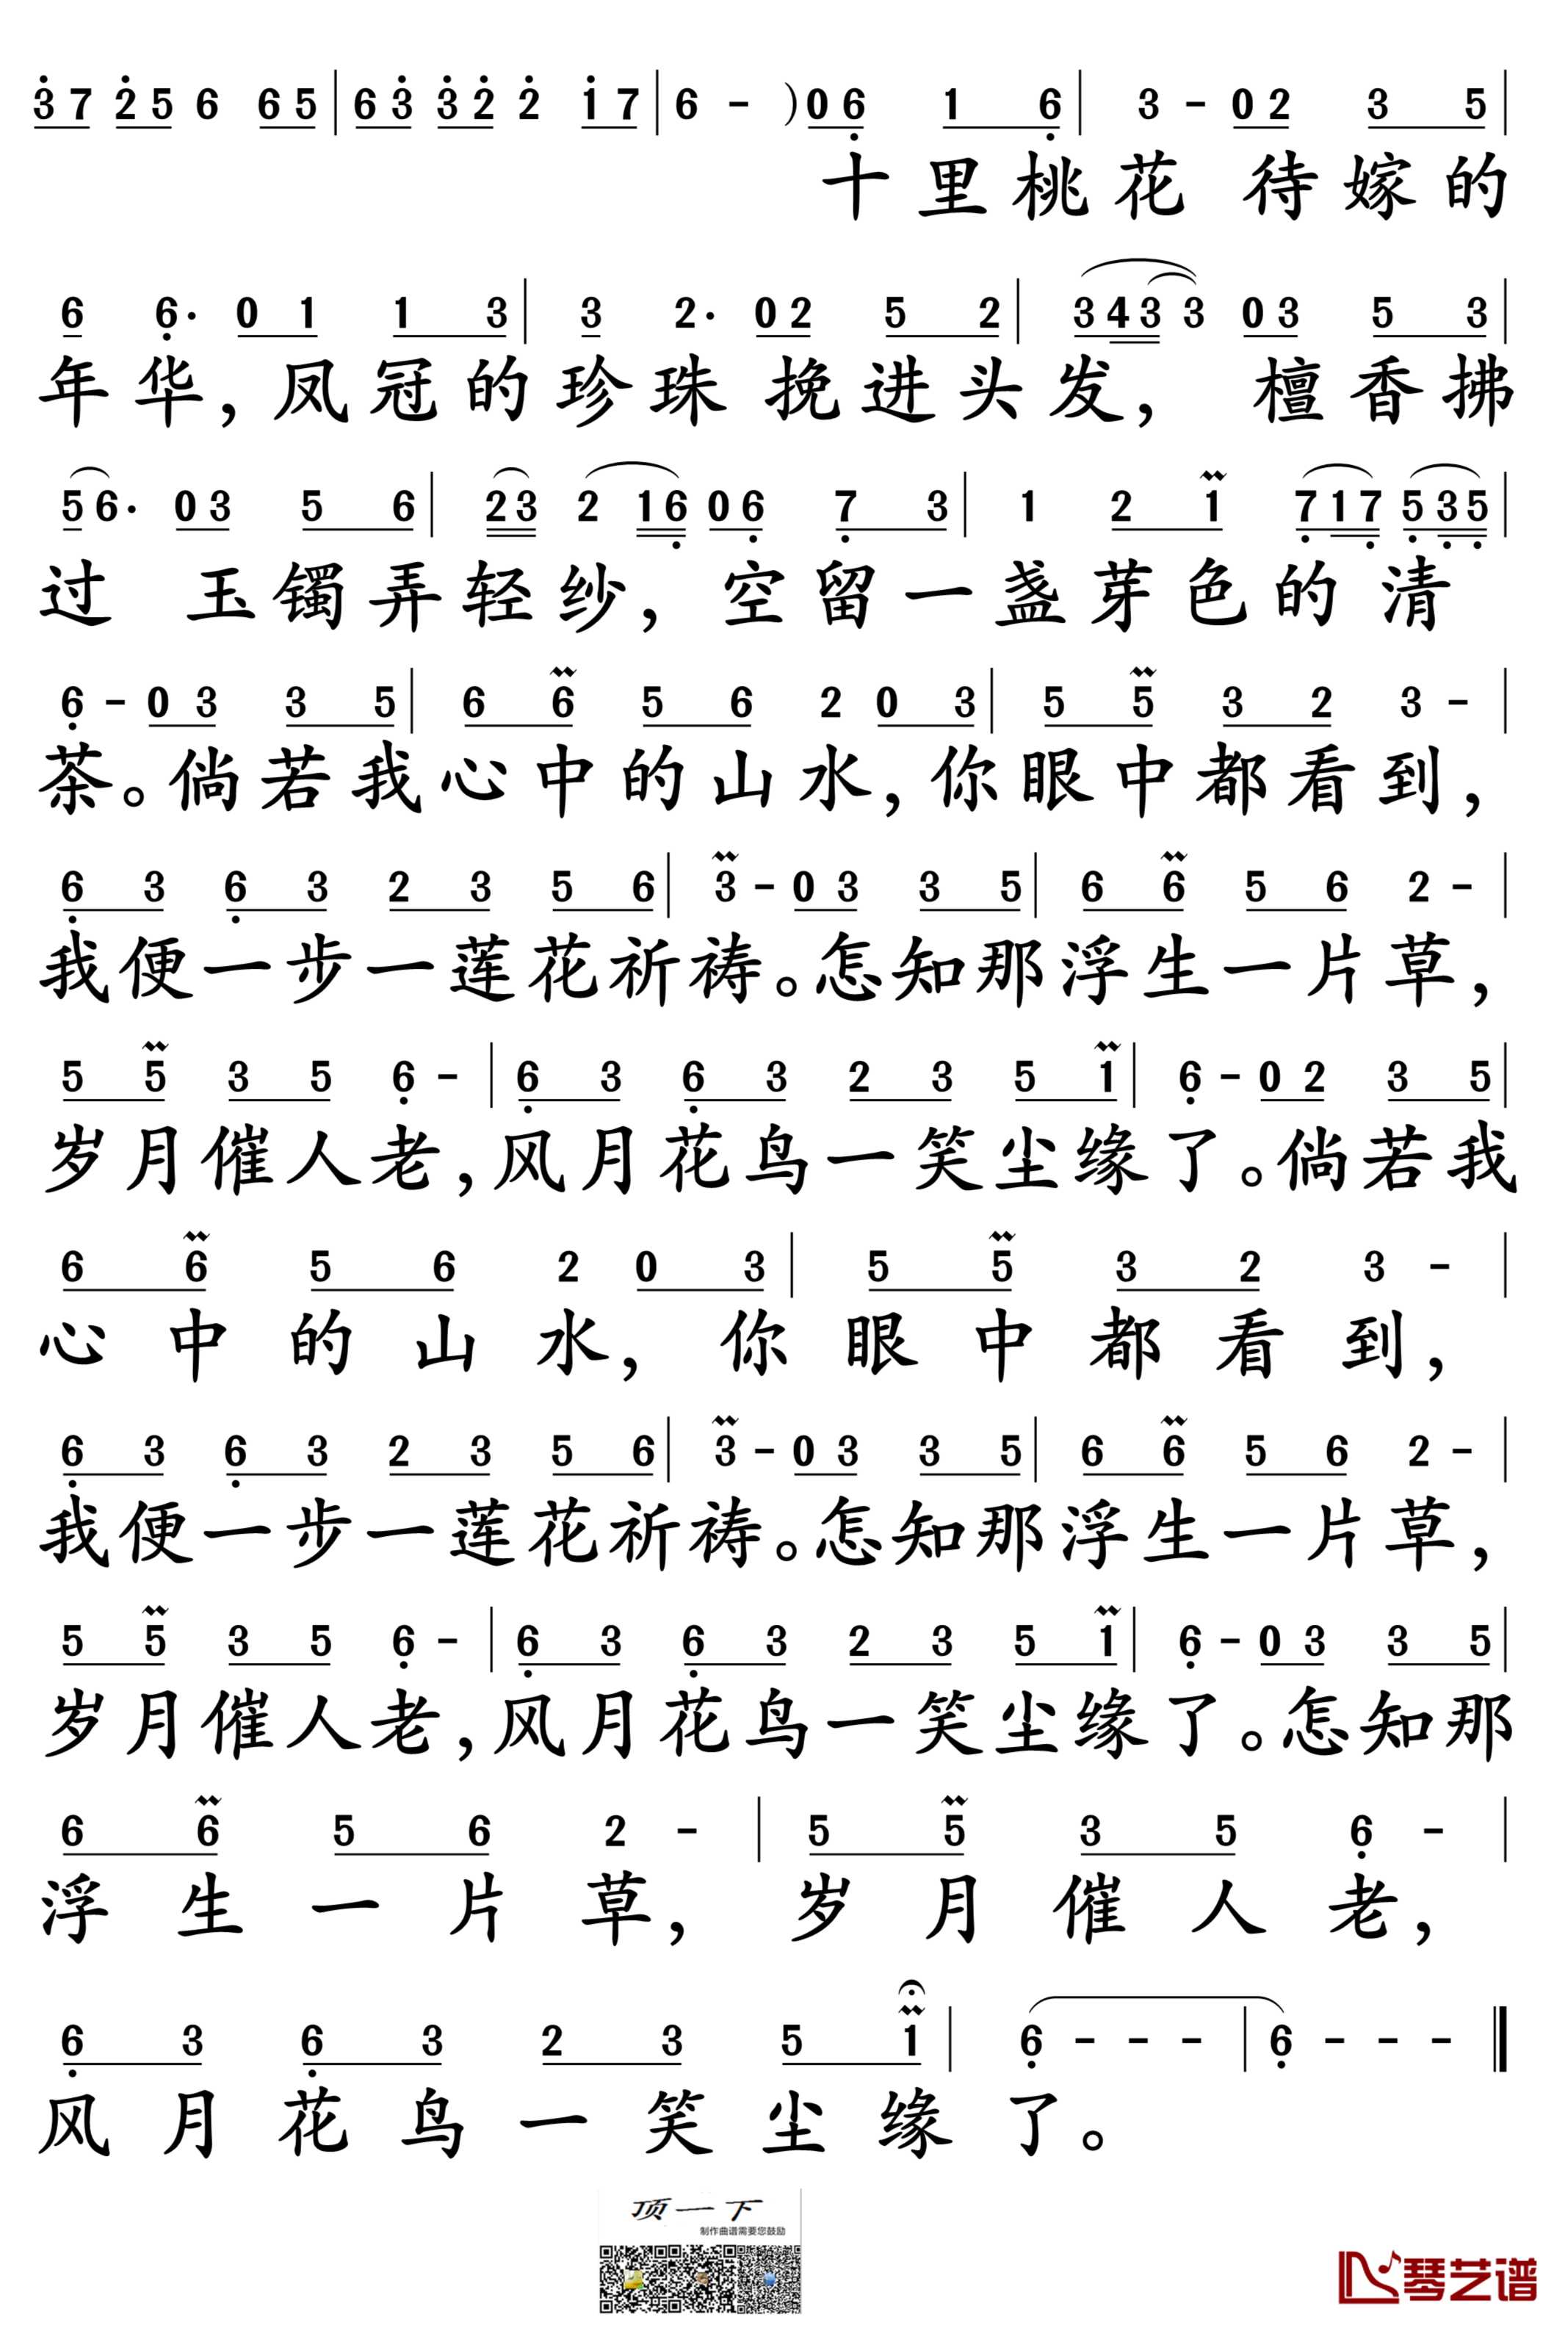 3 7 2 5 6 6 5 | 6 3 3 2 2 1 7 | 6 - ) 0 6 1 6 | 3 - 0 2 3 5 |
十里桃花 待嫁的
6 6· 0 1 1 3 | 3 2· 0 2 5 2 | 3 4 3 3 0 3 5 3 |
年华，凤冠的珍珠 挽进头发， 檀香拂
5 6· 0 3 5 6 | 2 3 2 1 6 0 6 7 3 | 1 2 1 7 1 7 5 3 5 |
过 玉镯弄轻纱，空留一盏芽色的清
6 - 0 3 3 5 | 6 6 5 6 2 0 3 | 5 5 3 2 3 - |
茶。倘若我心中的山水，你眼中都看到，
6 3 6 3 2 3 5 6 | 3 - 0 3 3 5 | 6 6 5 6 2 - |
我便一步一莲花祈祷。怎知那浮生一片草，
5 5 3 5 6 - | 6 3 6 3 2 3 5 1 | 6 - 0 2 3 5 |
岁月催人老，风月花鸟一笑尘缘了。倘若我
6 6 5 6 2 0 3 | 5 5 3 2 3 - |
心中的山水，你眼中都看到，
6 3 6 3 2 3 5 6 | 3 - 0 3 3 5 | 6 6 5 6 2 - |
我便一步一莲花祈祷。怎知那浮生一片草，
5 5 3 5 6 - | 6 3 6 3 2 3 5 1 | 6 - 0 3 3 5 |
岁月催人老，风月花鸟一笑尘缘了。怎知那
6 6 5 6 2 - | 5 5 3 5 6 - |
浮生一片草，岁月催人老，
6 3 6 3 2 3 5 1 | 6 - - - | 6 - - - ‖
风月花鸟一笑尘缘了。
顶一下
制作曲谱需要您鼓励
琴艺谱